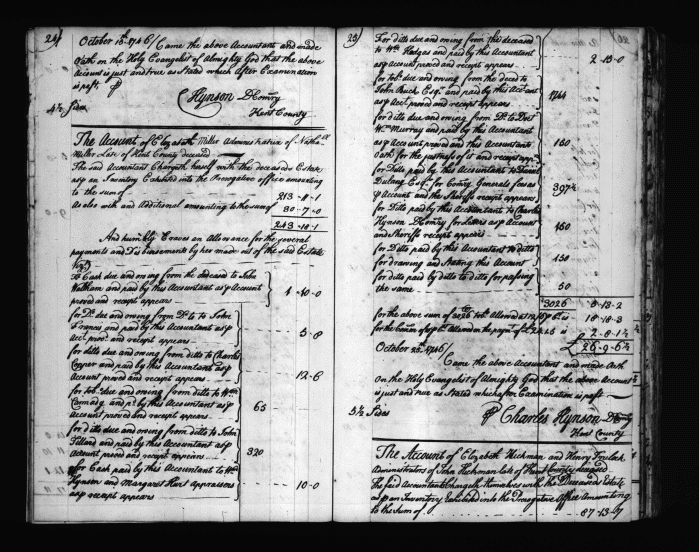 24
October 15th 1746 / Came the above Accountant and made
Oath on the Holy Evangelist of Almighty God that the above
Account is just and true as Stated which after Examination
is past. P
Hynson D Comry
Kent County
4½ Sides
The Account of Elizabeth Miller Administratrix of Natha:ll
Miller Late of Kent County deceased
The said Accountant Chargeth herself with the deceaseds Estate
as p an Inventory Exhibited into the Prerogative office amounting
to the sum of 213-11-1
As also with and Additional amounting to the sum of 30-7-0
243-18-1
And humbly Craves an Allowance for the several
payments and Disbursements by her made out of the said Estate
Vizt
To Cash due and owing from the deceased to John
Waltham and paid by this Accountant as p Account
proved and receipt appears 1-10-0
for Do. due and owing from Do. to John
Francis and paid by this Accountant as p
Acct. prov'd and receipt appears 5-8
for ditto due and owing from ditto to Charles
Copper and paid by this Accountant as p
Account proved and receipt appears 12-6
for tobo. due and owing from ditto to Wm.
Comady and pd. by this Accountant as p
Account proved and receipt appears 65
for ditto due and owing from ditto to John
Tillard and paid by this Accountant as p
Account proved and receipt appears 320
for Cash paid by this Accountant to Wm.
Hynson and Margaret Hart Appraisors
as p receipt appears 10-0
25
For ditto due and owing from the deceased
to Wm. Hodges and paid by this Accountant
as p Account proved and receipt appears 2-13-0
for tobo. due and owing from the deced to
John Ruck Esqr. and paid by this Accant
as p Acct. proved and receipt appears 1744
for ditto due and owing from Do. to Doct.
Wm. Murray and paid by this Accountant
as p Account proved and this Accountants
Oath for the justness of it and receipt appr. 150
for Ditto paid by this Accountant to Daniel
Dulany Esqr. for Comry Generals fees as
p Account and the Sheriffs receipt appears 397½
for Ditto paid by this Accountant to Charles
Hynson D Comry for fees as p Account
and Sheriffs receipt appears 150
for Ditto paid by this Accountant to ditto
for drawing and Stating this Account 150
for ditto paid by ditto to ditto for passing
the same 50
3026 5-13-2
for the above sum of tobo. Allowed at 12/6 p Ct. is 18-18-3
2-8-1½
£26-9-6½
October 25th 1746 /
Came the above Accountant and made Oath
On the Holy Evangelist of Almighty God that the above Account
is just and true as Stated which after Examination is past
5½ Sides
P Charles Hynson D Comry
Kent County
The Account of Elizabeth Hickman and Henry
Administrators of John Hickman late of Kent County deceased
The said Accountants Chargeth themselves with the Deceased Estate
as p an Inventory Exhibited into the Prerogative Office Amounting
to the Sum of 87-13-7